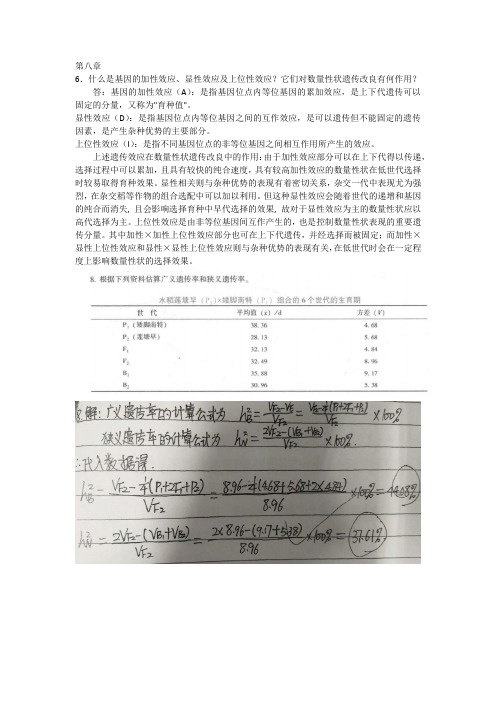 第八章
6．什么是基因的加性效应、显性效应及上位性效应？它们对数量性状遗传改良有何作用？
答：基因的加性效应（A）：是指基因位点内等位基因的累加效应，是上下代遗传可以
固定的分量，又称为"育种值"。
显性效应（D）：是指基因位点内等位基因之间的互作效应，是可以遗传但不能固定的遗传
因素，是产生杂种优势的主要部分。
上位性效应（I）：是指不同基因位点的非等位基因之间相互作用所产生的效应。
上述遗传效应在数量性状遗传改良中的作用：由于加性效应部分可以在上下代得以传递，
选择过程中可以累加，且具有较快的纯合速度，具有较高加性效应的数量性状在低世代选择
时较易取得育种效果。显性相关则与杂种优势的表现有着密切关系，杂交一代中表现尤为强
烈，在杂交稻等作物的组合选配中可以加以利用。但这种显性效应会随着世代的递增和基因
的纯合而消失，且会影响选择育种中早代选择的效果，故对于显性效应为主的数量性状应以
高代选择为主。上位性效应是由非等位基因间互作产生的，也是控制数量性状表现的重要遗
传分量。其中加性×加性上位性效应部分也可在上下代遗传，并经选择而被固定；而加性×
显性上位性效应和显性×显性上位性效应则与杂种优势的表现有关，在低世代时会在一定程
度上影响数量性状的选择效果。
8. 根据下列资料估算广义遗传率和狭义遗传率。
水稻莲塘早（P₂）×矮脚南特（P₁）组合的 6 个世代的生育期
世 代 平均值 (x̄) /d 方差 (V)
P₁ (矮脚南特) 38.36 4.68
P₂ (莲塘早) 28.13 5.68
F₁ 32.13 4.84
F₂ 32.49 8.96
B₁ 35.88 9.17
B₂ 30.96 5.38
解：广义遗传率的计算公式为 h²B = (VF2-VE)/VF2 = (VF2-¼(P1+2F1+P2))/VF2 ×100%
狭义遗传率的计算公式为 h²N = (2VF2-(VB1+VB2))/VF2 ×100%.
∴代入数据得.
h²B = (VF2-¼(P1+2F1+P2))/VF2 = (8.96-¼(4.68+5.68+2×4.84))/8.96 ×100% = 44.08%
h²N = (2VF2-(VB1+VB2))/VF2 = (2×8.96-(9.17+5.38))/8.96 ×100% = 37.61%